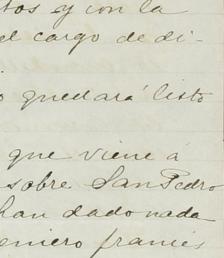 tos y con la
el cargo de di-
o quedará listo
que viene á
sobre San Pedro
han dado nada
eniero francés